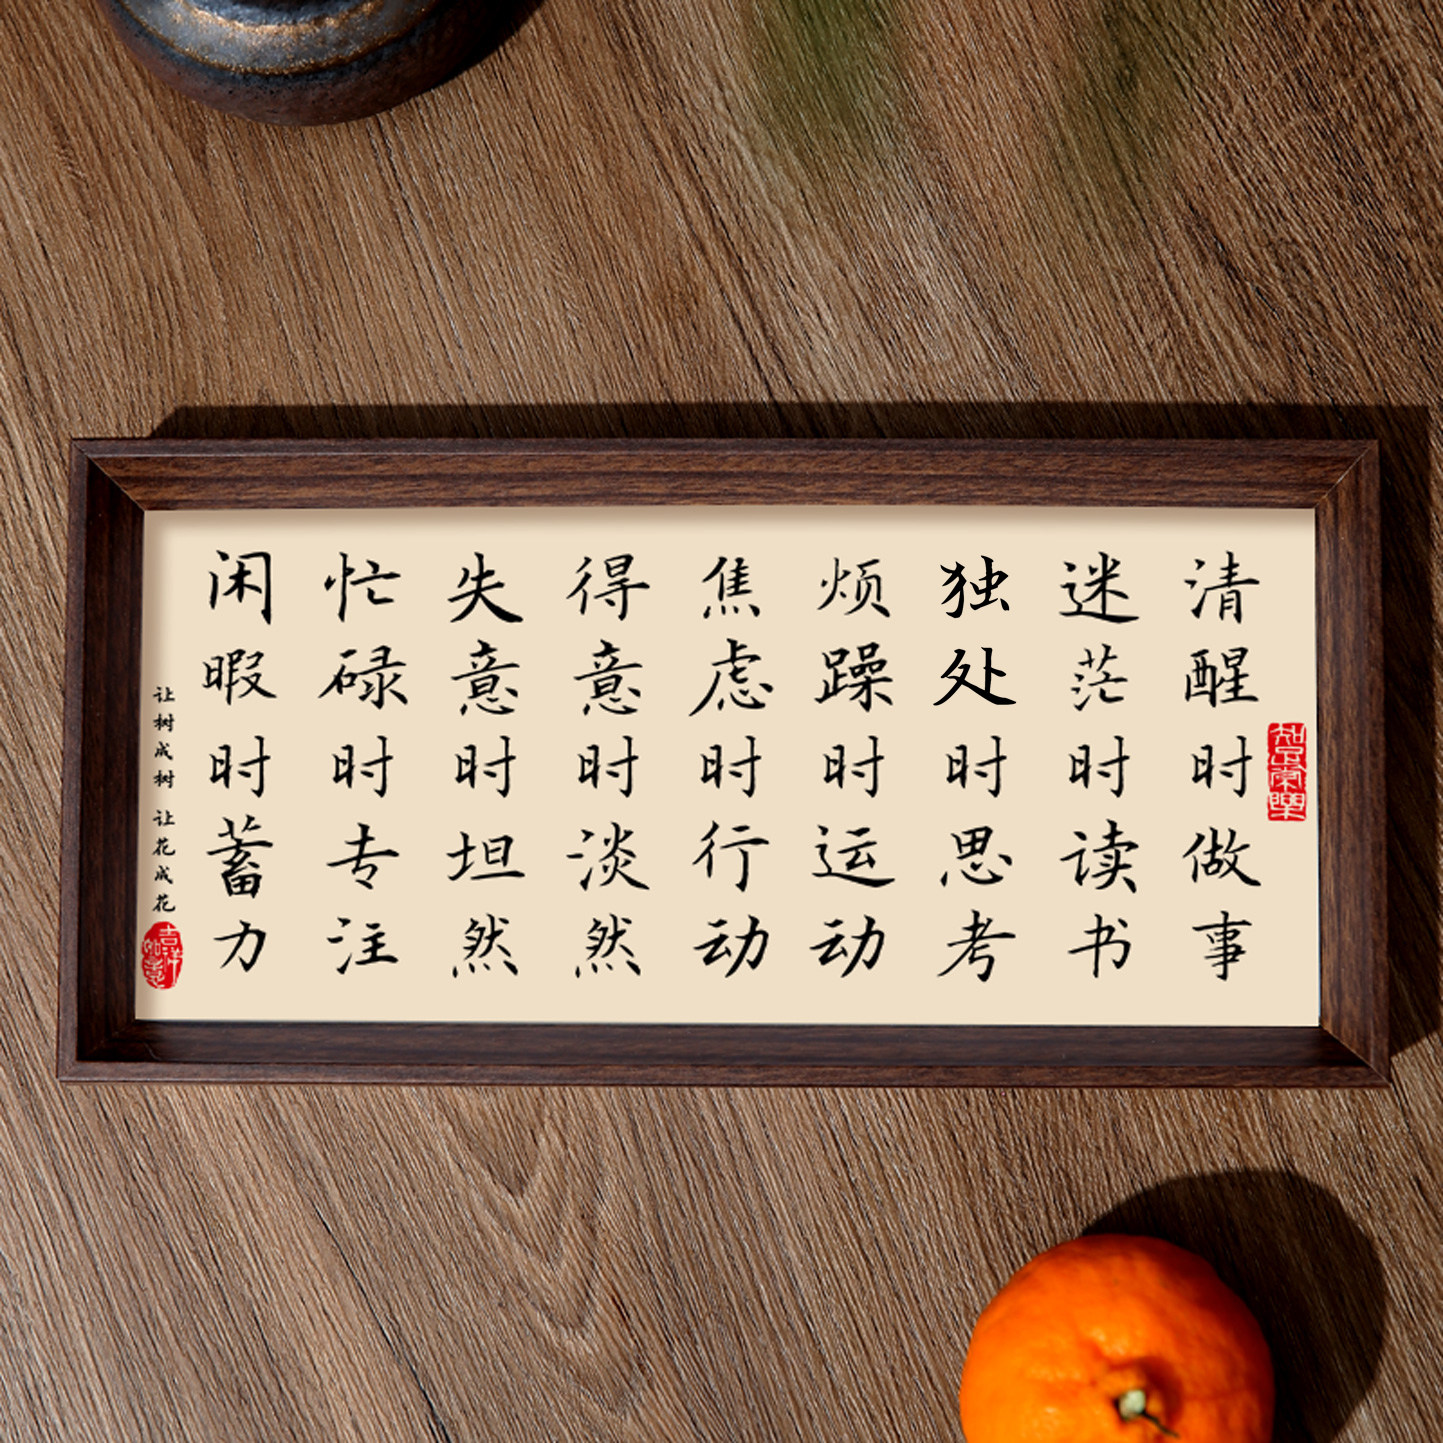 清醒时做事
迷茫时读书
独处时思考
烦躁时运动
焦虑时行动
得意时淡然
失意时坦然
忙碌时专注
闲暇时蓄力
让树成树 让花成花
知足常樂
吉祥如意